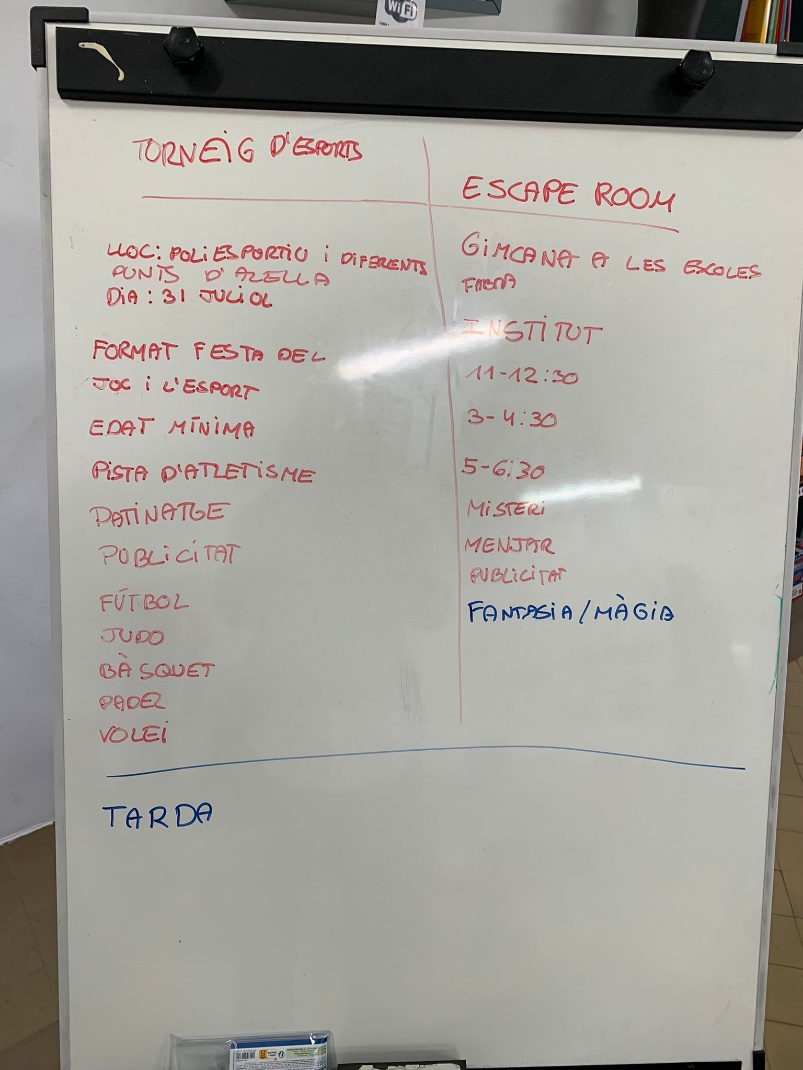 WiFi
TORNEIG D'ESPORTS
LLOC: POLIESPORTIU i DIFERENTS
PUNTS D'AZELLA
DIA: 31 JULIOL
FORMAT FESTA DEL
JOC i L'ESPORT
EDAT MÍNIMA
PISTA D'ATLETISME
PATINATGE
PUBLICITAT
FÚTBOL
JUDO
BÀSQUET
PADEL
VOLEI
ESCAPE ROOM
GIMCANA A LES ESCOLES
INSTITUT
11-12:30
3-4:30
5-6:30
MISTERI
MENJAR
PUBLICITAT
FANTASIA/MÀGIA
TARDA